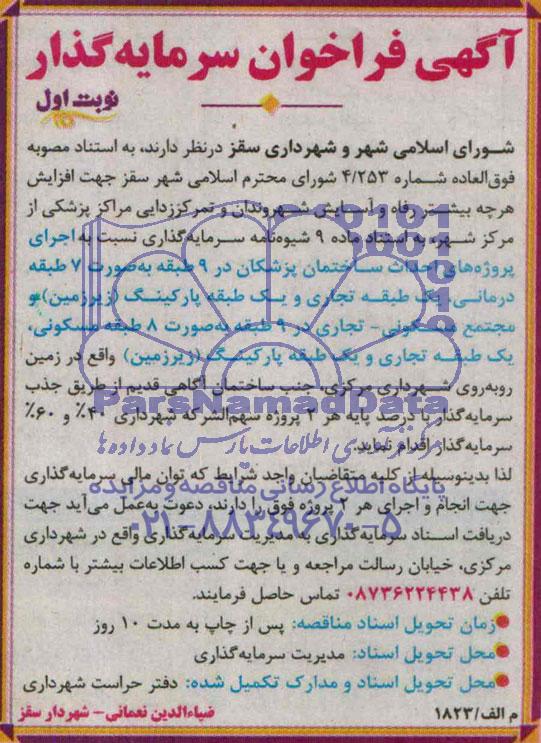 آگهی فراخوان سرمایه‌گذار
نوبت اول
شورای اسلامی شهر و شهرداری سقز درنظر دارند، به استناد مصوبه
فوق‌العاده شماره ۴/۲۵۳ شورای محترم اسلامی شهر سقز جهت افزایش
هرچه بیشتر رفاه و آسایش شهروندان و تمرکززدایی مراکز پزشکی از
مرکز شهر، به استناد ماده ۹ شیوه‌نامه سرمایه‌گذاری نسبت به اجرای
پروژه‌های احداث ساختمان پزشکان در ۹ طبقه به‌صورت ۷ طبقه
درمانی، یک طبقه تجاری و یک طبقه پارکینگ (زیرزمین) و
مجتمع مسکونی- تجاری در ۹ طبقه به‌صورت ۸ طبقه مسکونی،
یک طبقه تجاری و یک طبقه پارکینگ (زیرزمین) واقع در زمین
روبه‌روی شهرداری مرکزی، جنب ساختمان آگاهی قدیم از طریق جذب
سرمایه‌گذار با درصد پایه هر ۲ پروژه سهم‌الشرکه شهرداری ۴۰٪ و ۶۰٪
سرمایه‌گذار اقدام نماید.
لذا بدینوسیله از کلیه متقاضیان واجد شرایط که توان مالی سرمایه‌گذاری
جهت انجام و اجرای هر ۲ پروژه فوق را دارند، دعوت به‌عمل می‌آید جهت
دریافت اسناد سرمایه‌گذاری به مدیریت سرمایه‌گذاری واقع در شهرداری
مرکزی، خیابان رسالت مراجعه و یا جهت کسب اطلاعات بیشتر با شماره
تلفن ۰۸۷۳۶۲۲۴۴۳۸ تماس حاصل فرمایند.
زمان تحویل اسناد مناقصه: پس از چاپ به مدت ۱۰ روز
محل تحویل اسناد: مدیریت سرمایه‌گذاری
محل تحویل اسناد و مدارک تکمیل شده: دفتر حراست شهرداری
م الف/۱۸۲۳ ضیاءالدین نعمانی- شهردار سقز
ParsNamadData
مرکز فرآوری اطلاعات پارس نماد داده‌ها
پایگاه اطلاع رسانی مناقصه و مزایده
۰۲۱-۸۸۳۴۹۶۷۰-۵